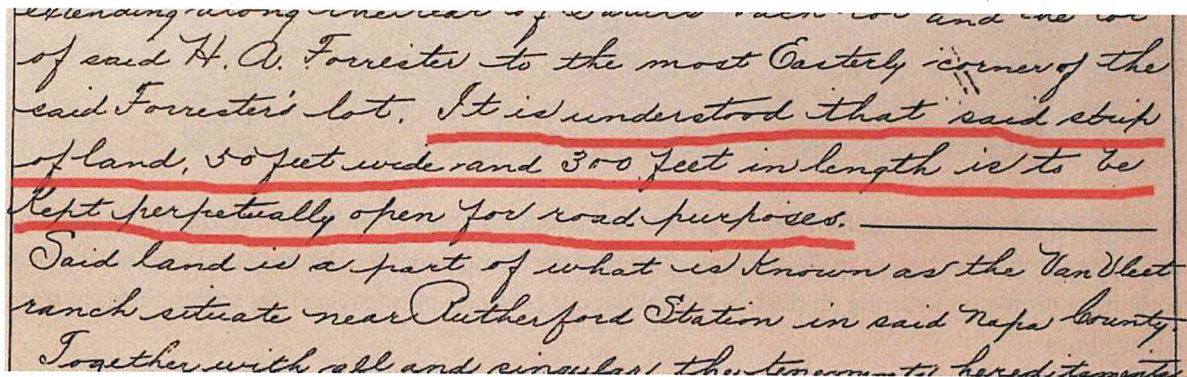 extending along the rear of said lot and the lot
of said H. A. Forrester to the most Easterly corner of the
said Forrester's lot. It is understood that said strip
of land, 50 feet wide and 300 feet in length is to be
Kept perpetually open for road purposes.
Said land is a part of what is Known as the Van Vleet
ranch situate near Rutherford Station in said Napa County.
Together with all and singular the tenements hereditaments